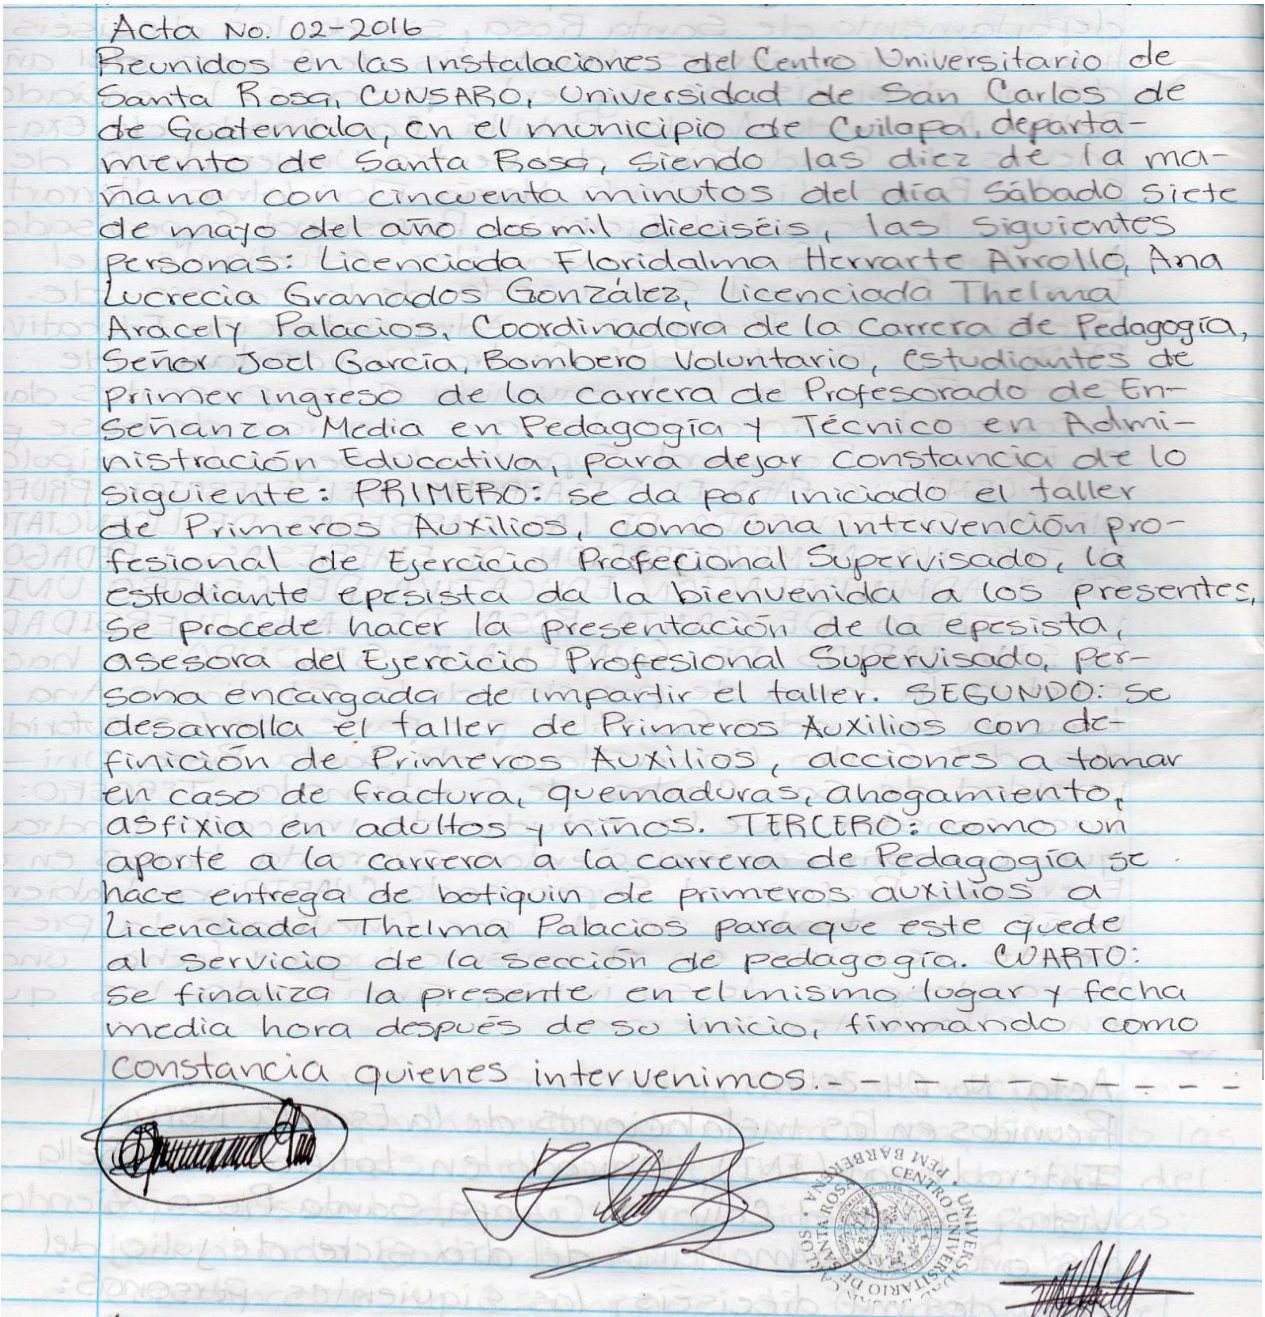 Acta No. 02-2016
Reunidos en las instalaciones del Centro Universitario de
Santa Rosa, CUNSARO, Universidad de San Carlos de
de Guatemala, en el municipio de Cuilapa, departa-
mento de Santa Rosa, siendo las diez de la ma-
ñana con cincuenta minutos del día sábado siete
de mayo del año dos mil dieciséis, las siguientes
personas: Licenciada Floridalma Herrarte Arrollo, Ana
Lucrecia Granados González, Licenciada Thelma
Aracely Palacios, Coordinadora de la Carrera de Pedagogía,
Señor Joel García, Bombero Voluntario, estudiantes de
primer ingreso de la carrera de Profesorado de En-
señanza Media en Pedagogía y Técnico en Admi-
nistración Educativa, para dejar constancia de lo
siguiente: PRIMERO: se da por iniciado el taller
de Primeros Auxilios, como una intervención pro-
fesional de Ejercicio Profecional Supervisado, la
estudiante epesista da la bienvenida a los presentes,
se procede hacer la presentación de la epesista,
asesora del Ejercicio Profesional Supervisado, per-
sona encargada de impartir el taller. SEGUNDO: se
desarrolla el taller de Primeros Auxilios con de-
finición de Primeros Auxilios, acciones a tomar
en caso de fractura, quemaduras, ahogamiento,
asfixia en adultos y niños. TERCERO: como un
aporte a la carrera a la carrera de Pedagogía se
hace entrega de botiquin de primeros auxilios a
Licenciada Thelma Palacios para que este quede
al servicio de la sección de pedagogía. CUARTO:
se finaliza la presente en el mismo lugar y fecha
media hora después de su inicio, firmando como
constancia quienes intervenimos.- - - - - - - - - -
PEM BARBERENA
CENTRO UNIVERSITARIO DE SANTA ROSA
CARLOS